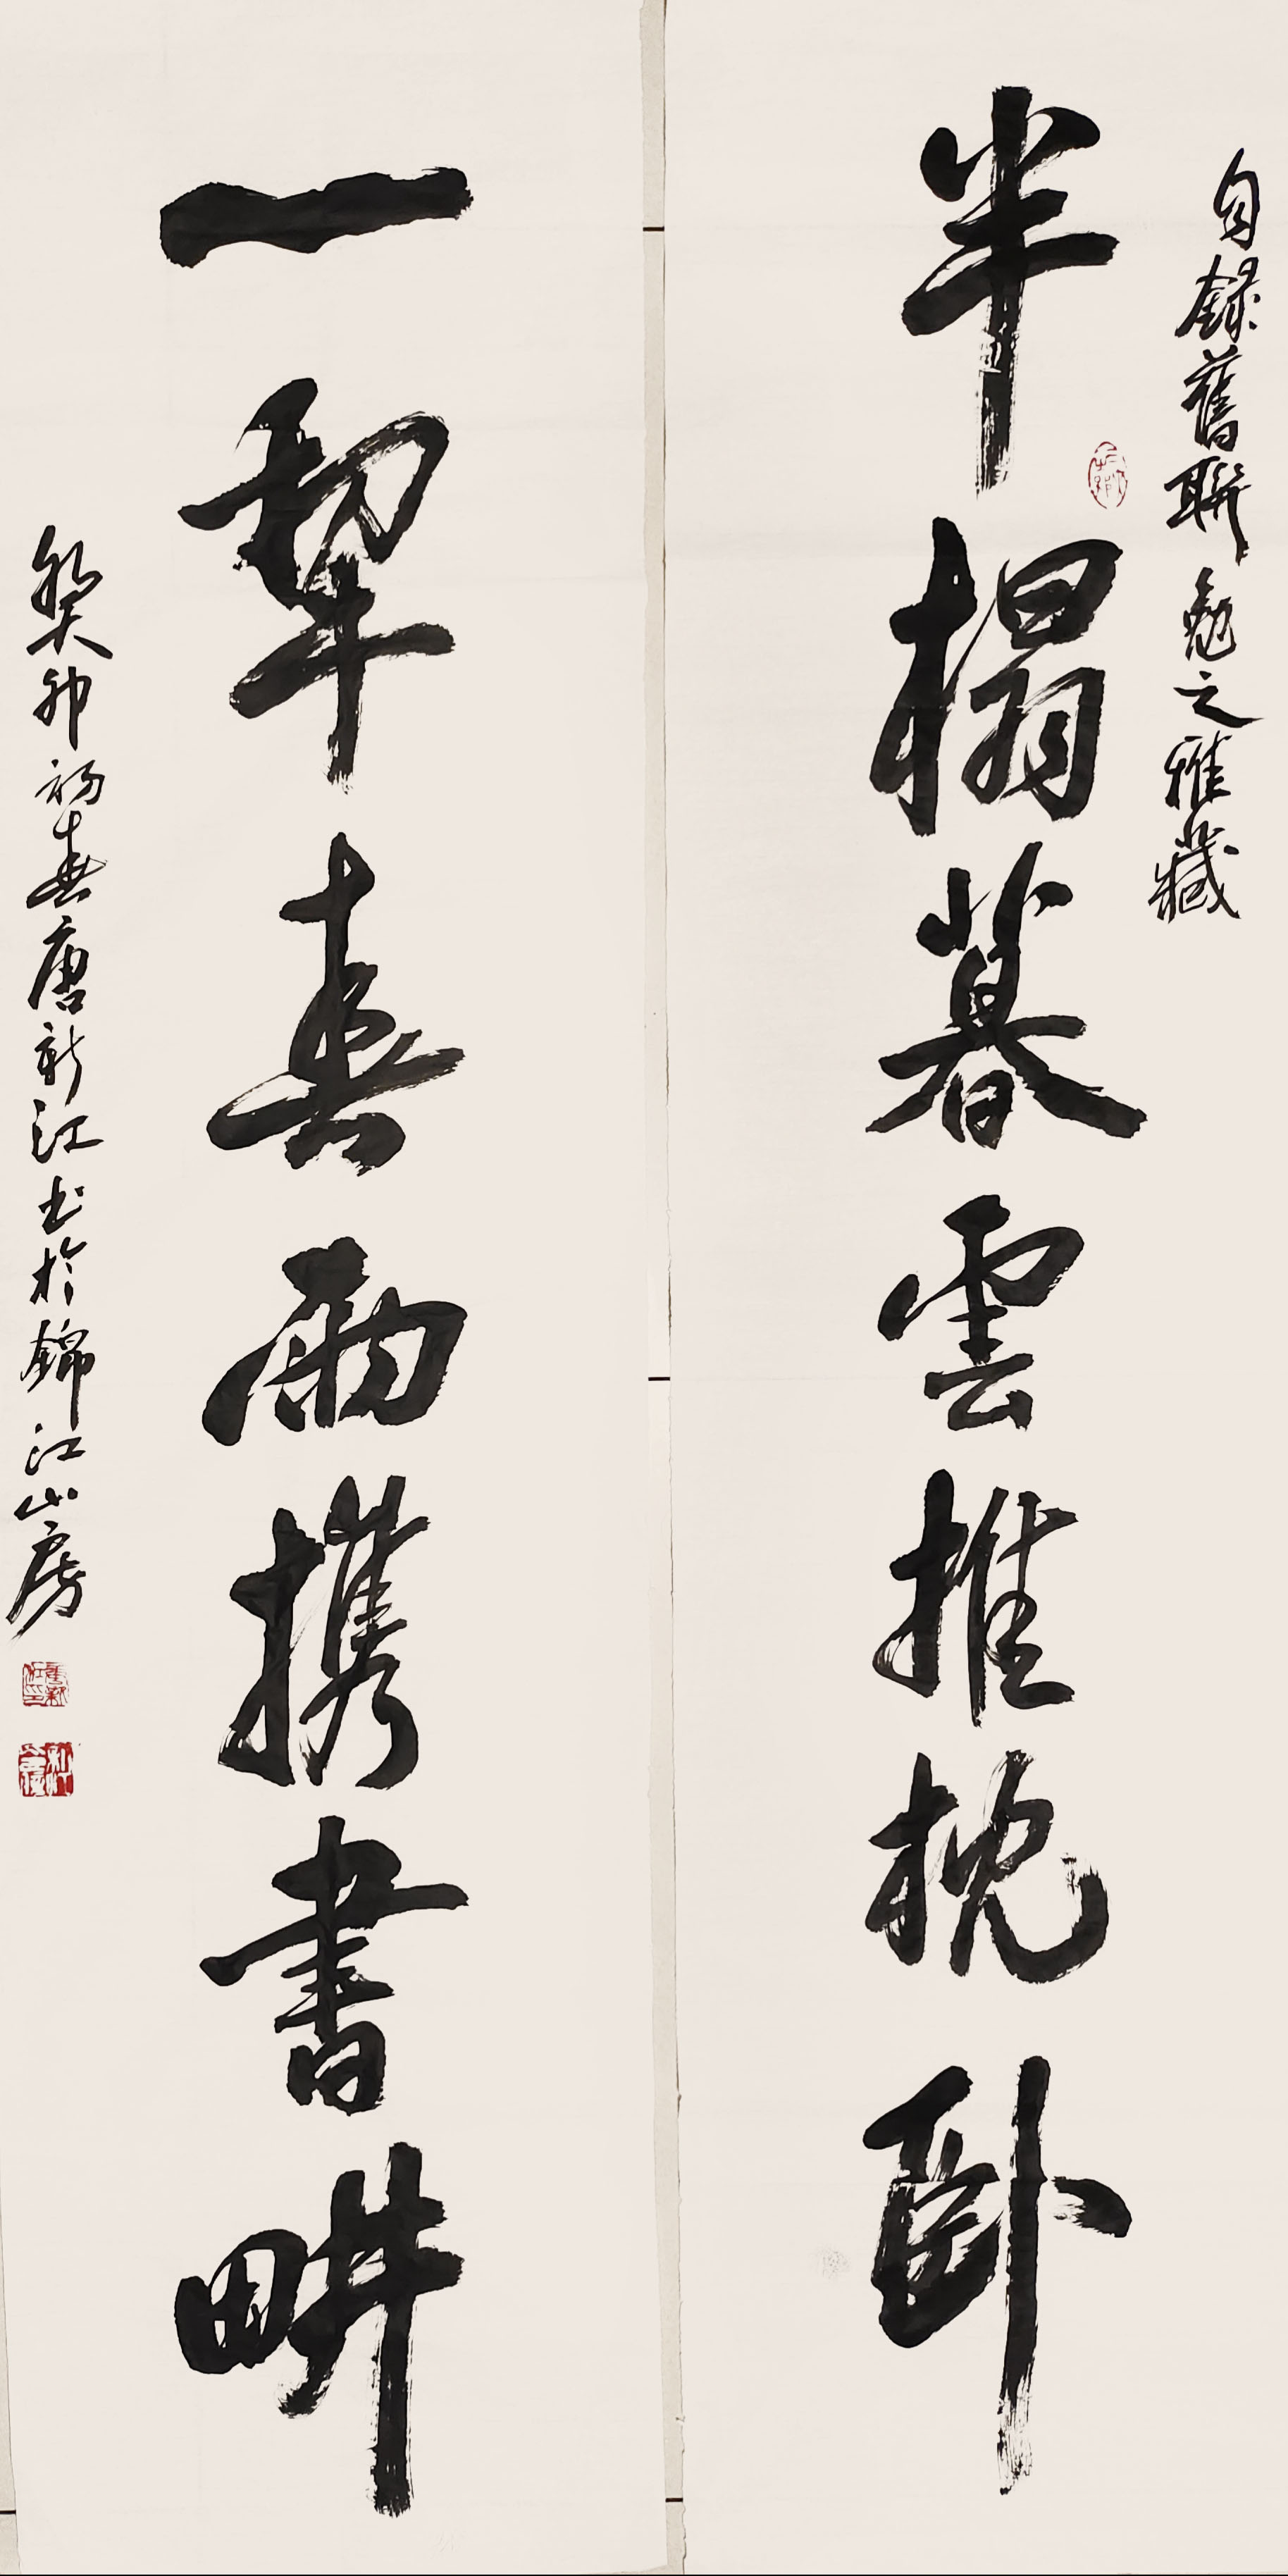 自錄舊聯勉之雅藏
半榻暮雲推枕卧
一犂春雨携書畊
癸卯初春唐新江书於錦江山房